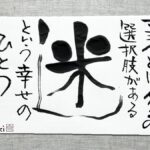 選択肢がある
迷
という幸せの
ひとつ